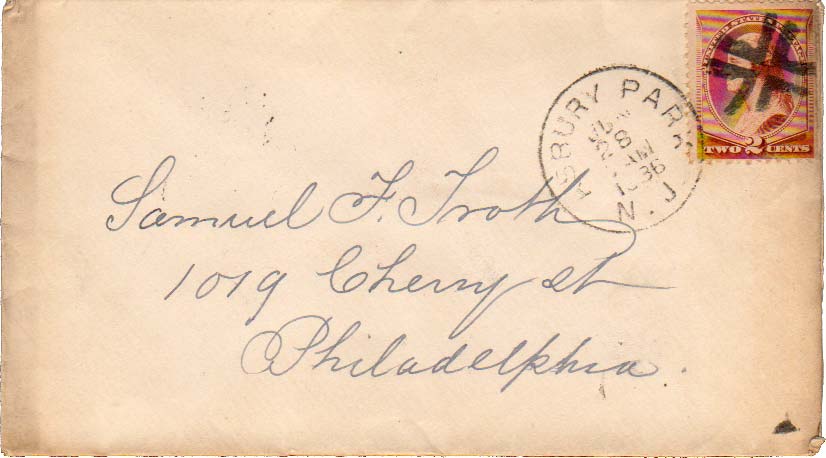 UNITED STATES POSTAGE
TWO 2 CENTS
ASBURY PARK
28
AM
1886
N.J
Samuel F. Troth
1019 Cherry st
Philadelphia.